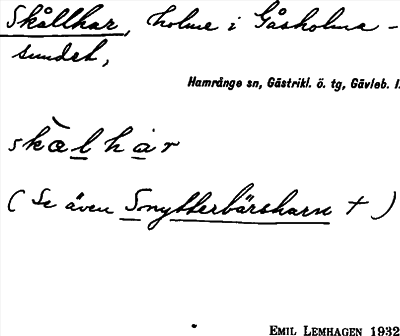 Skållhar, holme i Gåsholma-
sundet,
Hamrånge sn, Gästrikl. ö. tg, Gävleb. l.
skàlhar
(Se även Snytterbärsharn †)
EMIL LEMHAGEN 1932